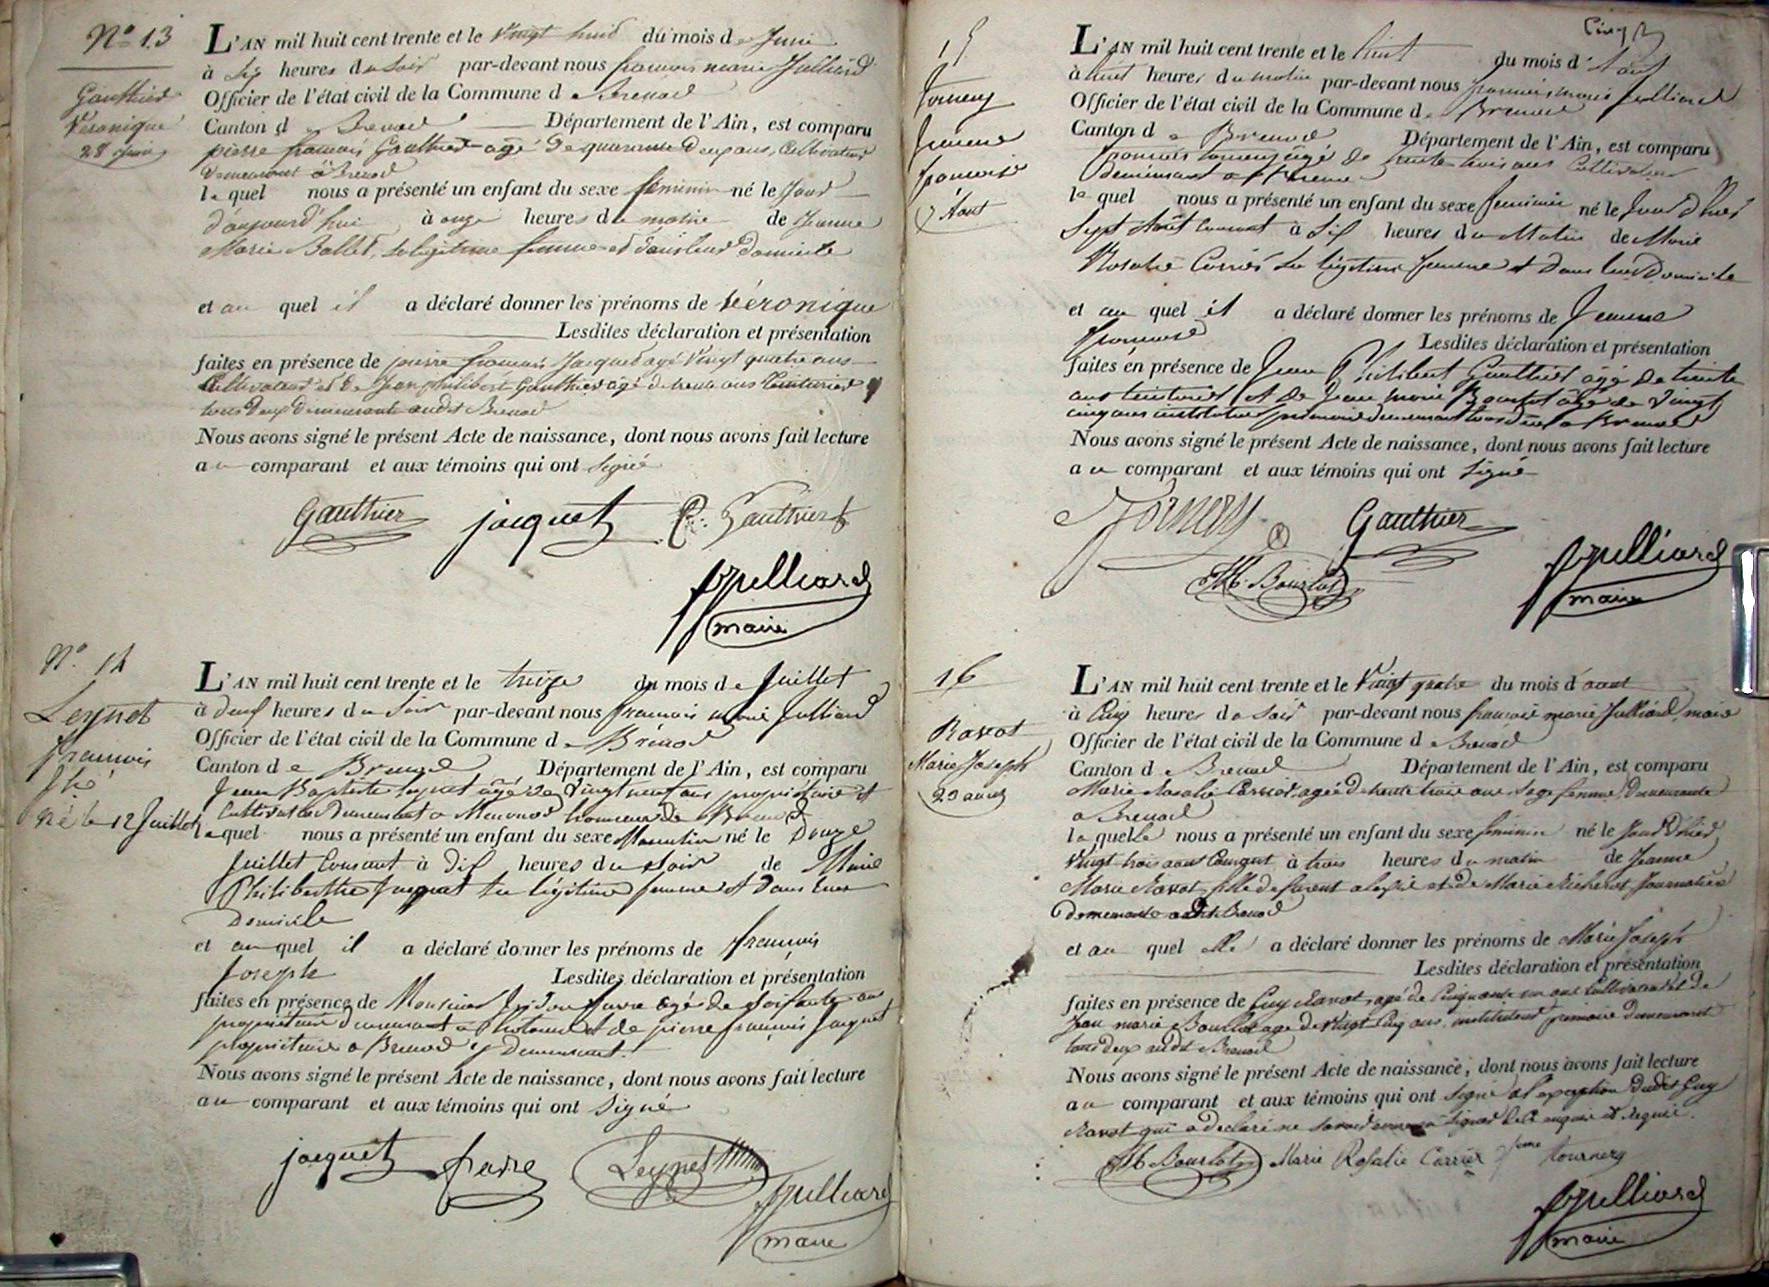 Nº 13
Gauthier
Véronique
28 juin
L'AN mil huit cent trente et le vingt huit du mois de Juin
à six heures du soir par-devant nous françois marie Julliard
Officier de l'état civil de la Commune de Brenod
Canton de Brenod Département de l'Ain, est comparu
pierre françois Gauthier agé de quarante deux ans, Cultivateur
demeurant à Brenod
le quel nous a présenté un enfant du sexe feminin né le Jour
d'aujourd'hui à onze heures du matin de Jeanne
Marie Ballet, sa légitime femme et dans leur domicile
et au quel il a déclaré donner les prénoms de Véronique
Lesdites déclaration et présentation
faites en présence de pierre françois Jacquet agé vingt quatre ans
Cultivateur et de Jean philibert Gauthier agé de trente ans teinturier
tous deux demeurants audit Brenod
Nous avons signé le présent Acte de naissance, dont nous avons fait lecture
au comparant et aux témoins qui ont signé
Gauthier jacquet Gauthier
Julliard
maire
Nº 14
Leynet
françois
Jh
né le 12 Juillet
L'AN mil huit cent trente et le treize du mois de Juillet
à deux heures du soir par-devant nous françois marie Julliard
Officier de l'état civil de la Commune de Brénod
Canton de Brenod Département de l'Ain, est comparu
Jean Baptiste Leynet âgé de vingt neuf ans propriétaire et
Cultivateur demeurant a hameau de Brenod
le quel nous a présenté un enfant du sexe Masculin né le Douze
Juillet Courant à dix heures du soir de Marie
Philiberthe Jacquet sa légitime femme et dans leur
Domicile
et au quel il a déclaré donner les prénoms de françois
Joseph Lesdites déclaration et présentation
faites en présence de Monsieur favre agé de soixante ans
propriétaire demeurant a et de pierre françois Jacquet
propriétaire a Brenod y demeurant.
Nous avons signé le présent Acte de naissance, dont nous avons fait lecture
au comparant et aux témoins qui ont signé
jacquet favre Leynet
Julliard
maire
Cinq
15
Tornery
Jeanne
françoise
7 Aout
L'AN mil huit cent trente et le huit du mois d'Aout
à huit heures du matin par-devant nous françois marie Julliard
Officier de l'état civil de la Commune de Brenod
Canton de Brenod Département de l'Ain, est comparu
françois Tornery âgé de trente trois ans Cultivateur
demeurant a Brenod
le quel nous a présenté un enfant du sexe feminin né le Jour d'hier
Sept Août Courant à six heures du Matin de Marie
Rosalie Carrier sa légitime femme et dans leur Domicile
et au quel il a déclaré donner les prénoms de Jeanne
françoise Lesdites déclaration et présentation
faites en présence de Jean Philibert Gauthier âgé de trente
ans teinturier et de Jean Marie Bourlot âgé de vingt
cinq ans instituteur primaire demeurant tous deux a Brenod
Nous avons signé le présent Acte de naissance, dont nous avons fait lecture
au comparant et aux témoins qui ont signé
Tornery Gauthier
Bourlot
Julliard
maire
16
Ravot
Marie Joseph
23 aout
L'AN mil huit cent trente et le Vingt quatre du mois d'aout
à Cinq heures du soir par-devant nous françois marie Julliard, maire
Officier de l'état civil de la Commune de Brenod
Canton de Brenod Département de l'Ain, est comparu
Marie Rosalie Carrier, agée de trente trois ans Sage femme, demeurante
a Brenod
la quelle nous a présenté un enfant du sexe feminin né le Jour d'hier
vingt trois aout Courant à trois heures du matin de Jeanne
Marie Ravot, fille de et de Marie Journalière
demeurante audit Brenod
et au quel elle a déclaré donner les prénoms de Marie Joseph
Lesdites déclaration et présentation
faites en présence de Guy Ravot, agé de Cinquante un ans Cultivateur et de
Jean marie Bourlot age de vingt Cinq ans, instituteur primaire demeurant
tous deux audit Brenod
Nous avons signé le présent Acte de naissance, dont nous avons fait lecture
au comparant et aux témoins qui ont signé a l'exception dudit Guy
Ravot qui a declaré ne savoir signer de ce enquis et requis.
Bourlot Marie Rosalie Carrier feme Tournery
Julliard
maire